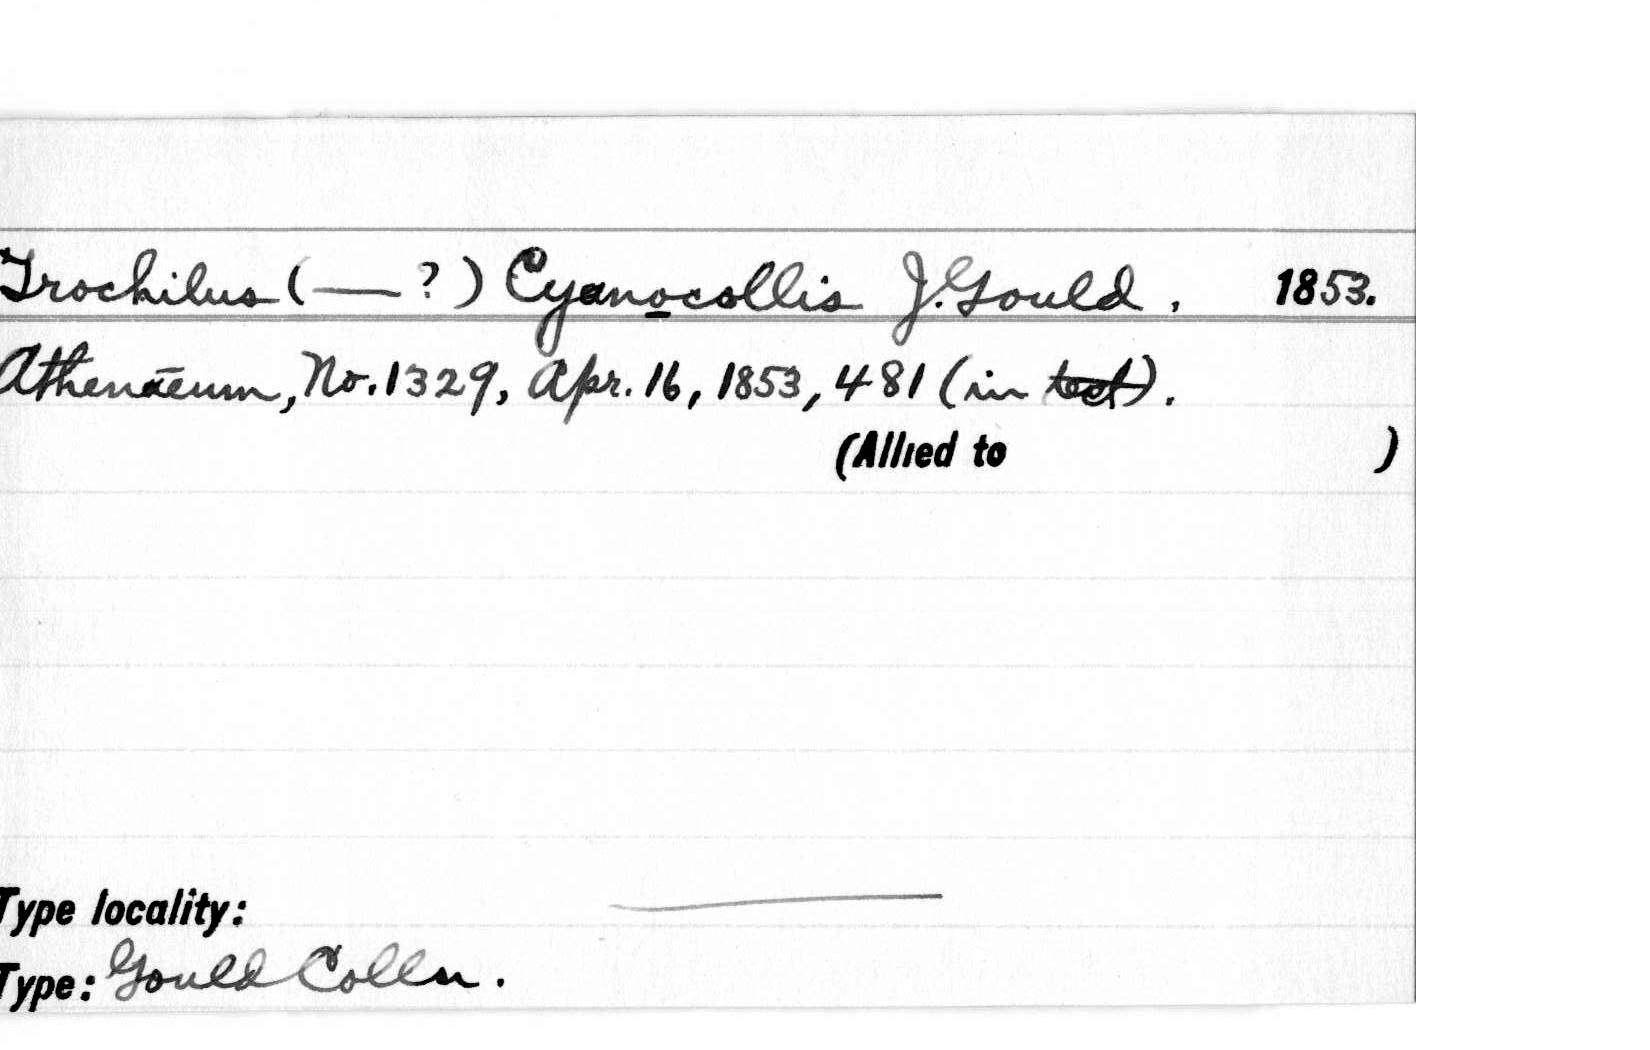 Trochilus (— ?) Cyanocollis J. Gould. 1853.
Athenæum, No. 1329, Apr. 16, 1853, 481 (in text).
(Allied to )
Type locality: —
Type: Gould Colln.